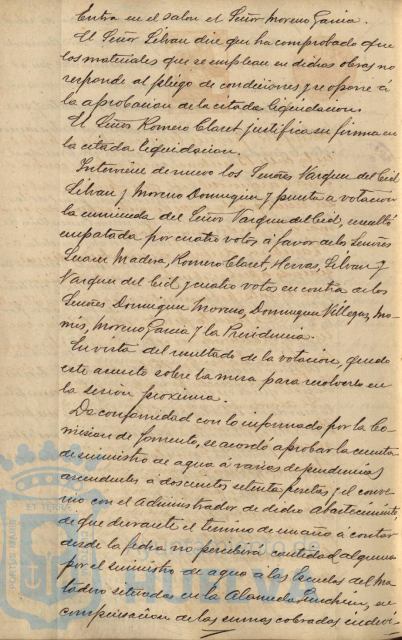 Entra en el salon el Señor Moreno Garcia.
El Señor Silvan dice que ha comprobado que
los materiales que se emplean en dichas obras no
responde al pliego de condiciones y se opone á
la aprobacion de la citada liquidacion.
El Señor Romero Claret justifica su firma en
la citada liquidacion.
Interviene de nuevo los Señores Vazquez del Cid
Silvan y Moreno Dominguez y puesta a votacion
la enmienda del Señor Vazquez del Cid, resultó
empatada por cuatro votos á favor de los Señores
Suarez Madera, Romero Claret, Hervas, Silvan y
Vazquez del Cid y cuatro votos en contra de los
Señores Dominguez Moreno, Dominguez Villegas, Mo-
nis, Moreno Garcia y la Presidencia.
En vista del resultado de la votacion, quedo
este asunto sobre la mesa para resolverlo en
la sesion proxima.
De conformidad con lo informado por la Co-
mision de fomento, se acordó aprobar la cuenta
de suministro de agua á varias dependencias
ascendentes á doscientas setenta pesetas y el conve-
nio con el Administrador de dicho Abastecimiento,
de que durante el termino de un año a contar
desde la fecha no percibirá cantidad alguna
por el suministro de agua a las Escuelas del Ma-
tadero situadas en la Alameda Sundheim, en
compensacion de las sumas cobradas
PORTUS MARIS ET TERRÆ